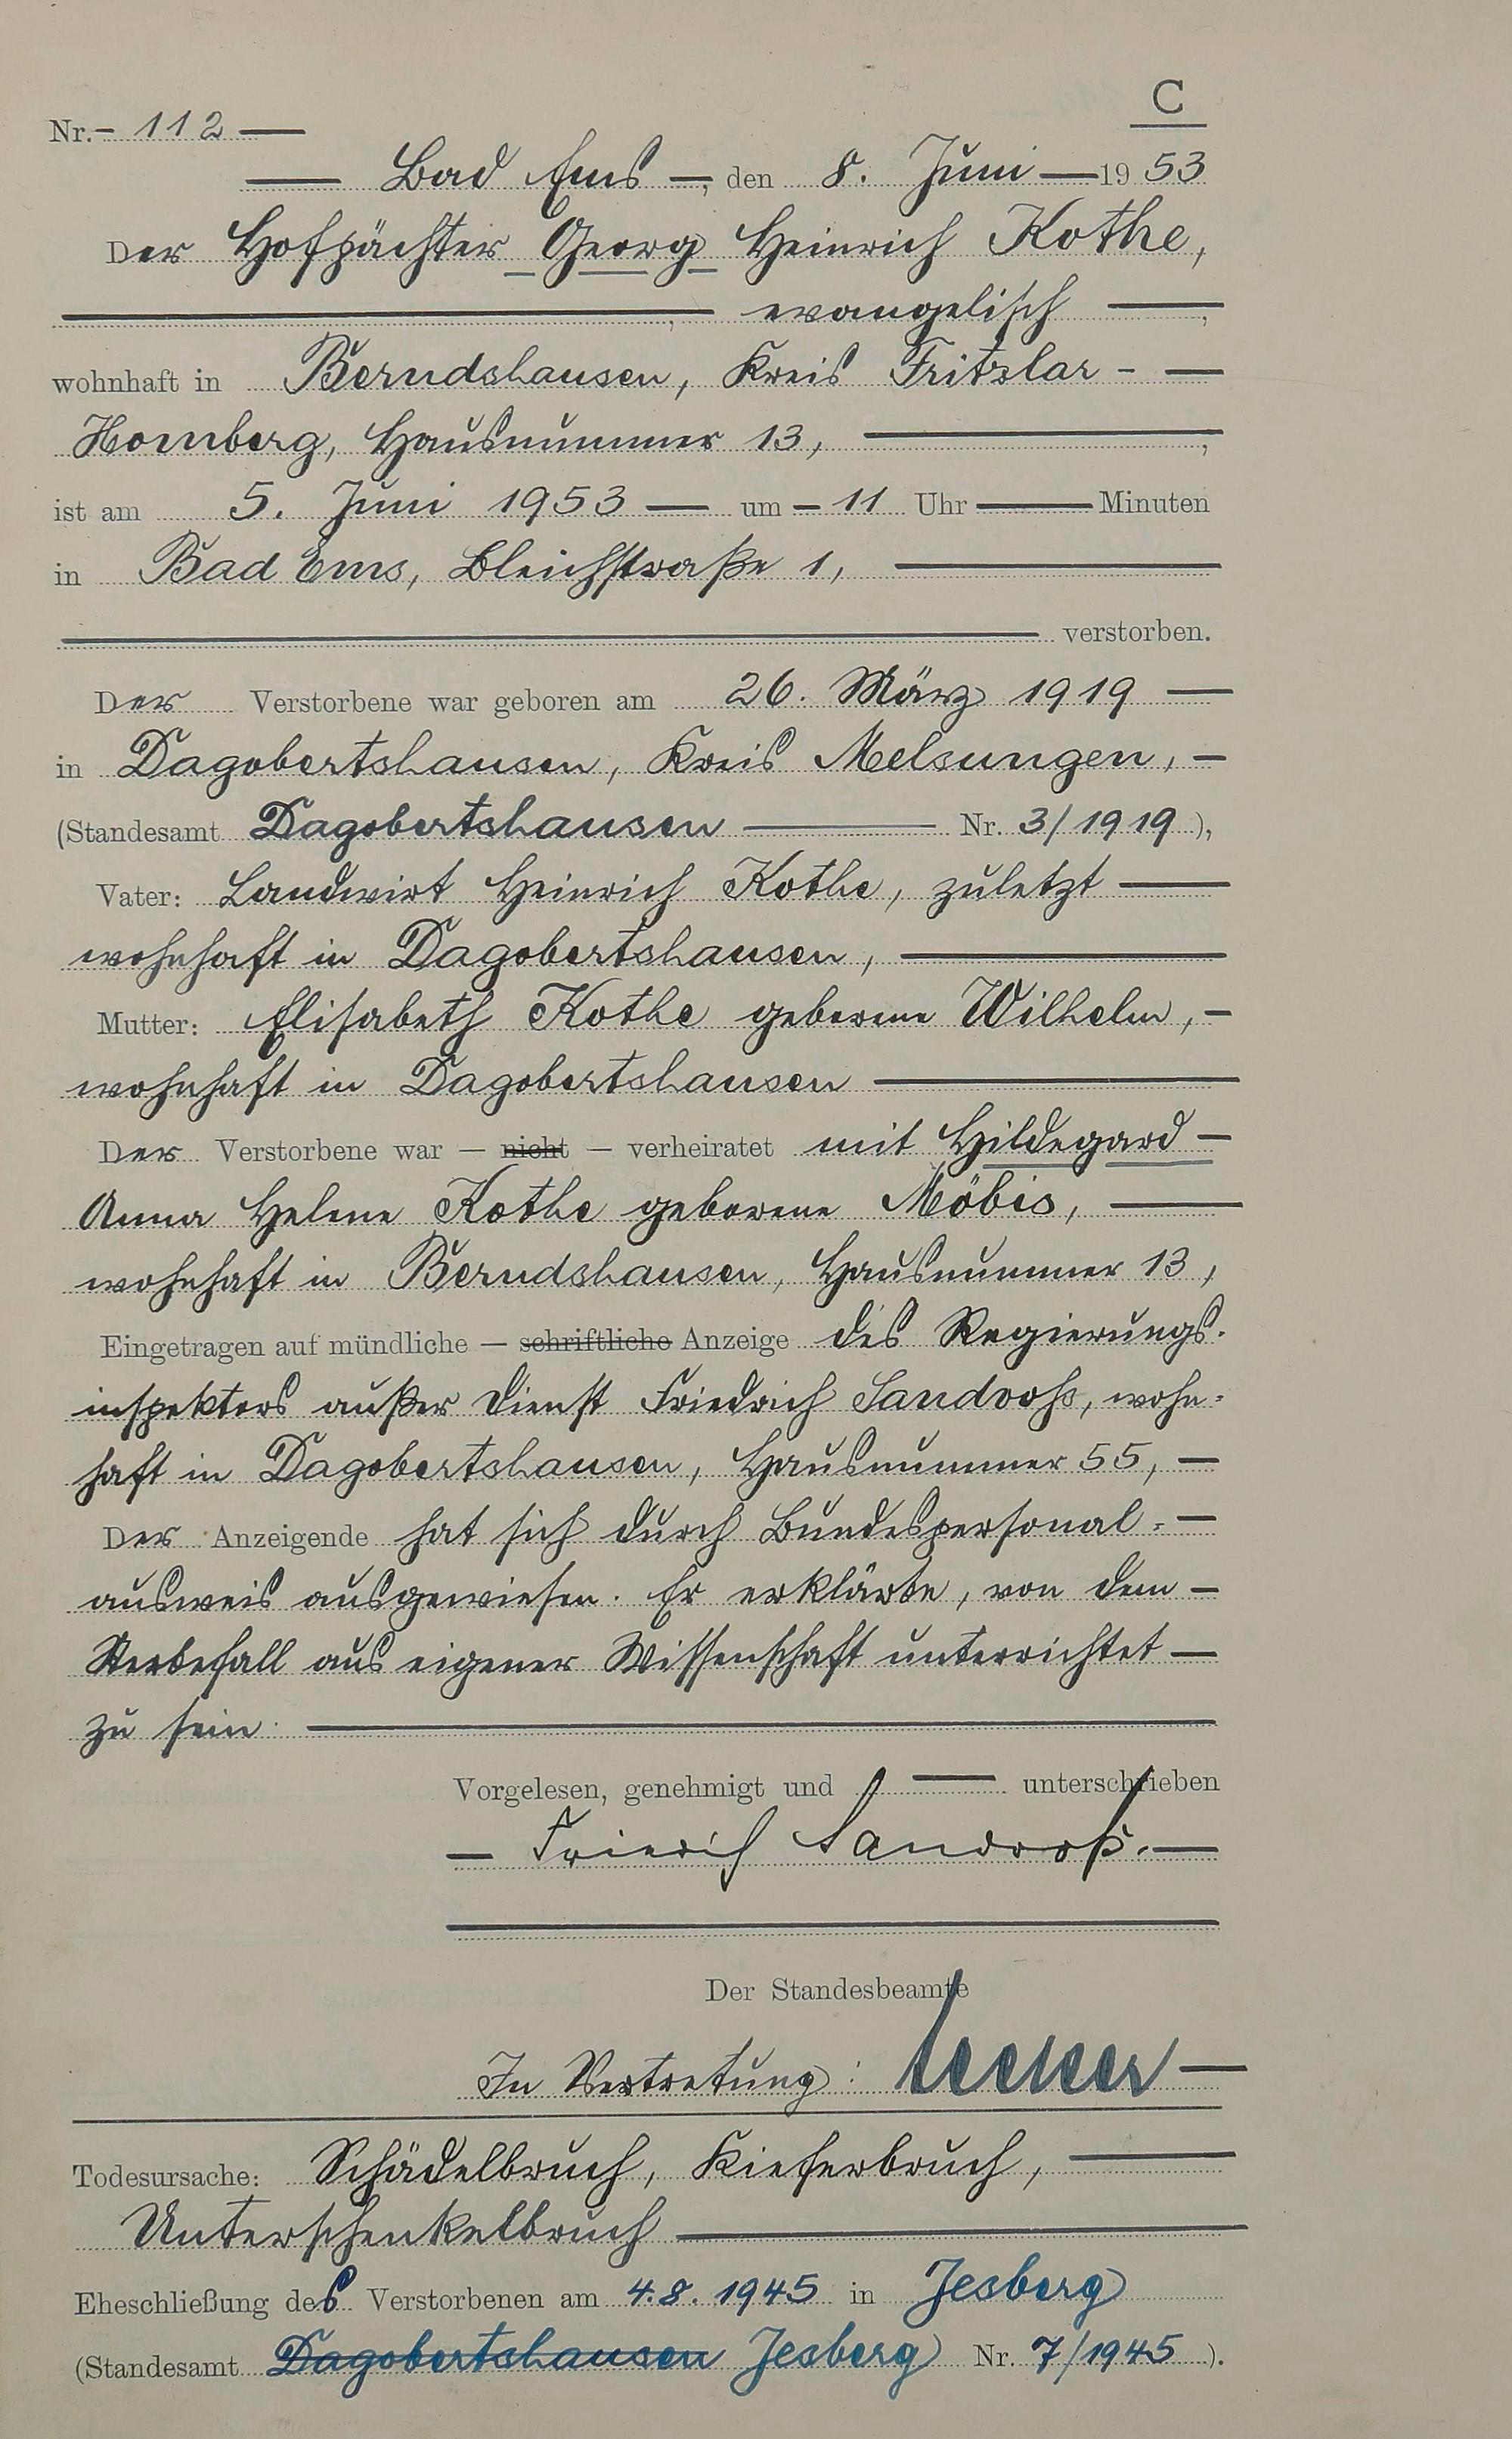 C
Nr. – 112 —
— Bad Ems —, den 8. Juni — 1953
Der Hofpächter Georg Heinrich Kothe,
—, evangelisch —,
wohnhaft in Berndshausen, Kreis Fritzlar - —
Homberg, Hausnummer 13, —,
ist am 5. Juni 1953 — um – 11 Uhr — Minuten
in Bad Ems, Bleichstraße 1, —
— verstorben.
Der Verstorbene war geboren am 26. März 1919 —
in Dagobertshausen, Kreis Melsungen, –
(Standesamt Dagobertshausen — Nr. 3/1919),
Vater: Landwirt Heinrich Kothe, zuletzt —
wohnhaft in Dagobertshausen, —
Mutter: Elisabeth Kothe geborene Wilhelm, –
wohnhaft in Dagobertshausen —
Der Verstorbene war — nicht — verheiratet mit Hildegard –
Anna Helene Kothe geborene Möbis, —
wohnhaft in Berndshausen, Hausnummer 13,
Eingetragen auf mündliche — schriftliche Anzeige des Regierungs-
inspektors außer Dienst Friedrich Sandrohs, wohn-
haft in Dagobertshausen, Hausnummer 55, –
Der Anzeigende hat sich durch Bundespersonal- –
ausweis ausgewiesen. Er erklärte, von dem –
Sterbefall aus eigener Wissenschaft unterrichtet –
zu sein. —
Vorgelesen, genehmigt und — unterschrieben
– Friedrich –
Der Standesbeamte
In Vertretung: –
Todesursache: Schädelbruch, Kieferbruch, —
Unterschenkelbruch —
Eheschließung des Verstorbenen am 4.8.1945 in Jesberg
(Standesamt Dagobertshausen Jesberg Nr. 7/1945).